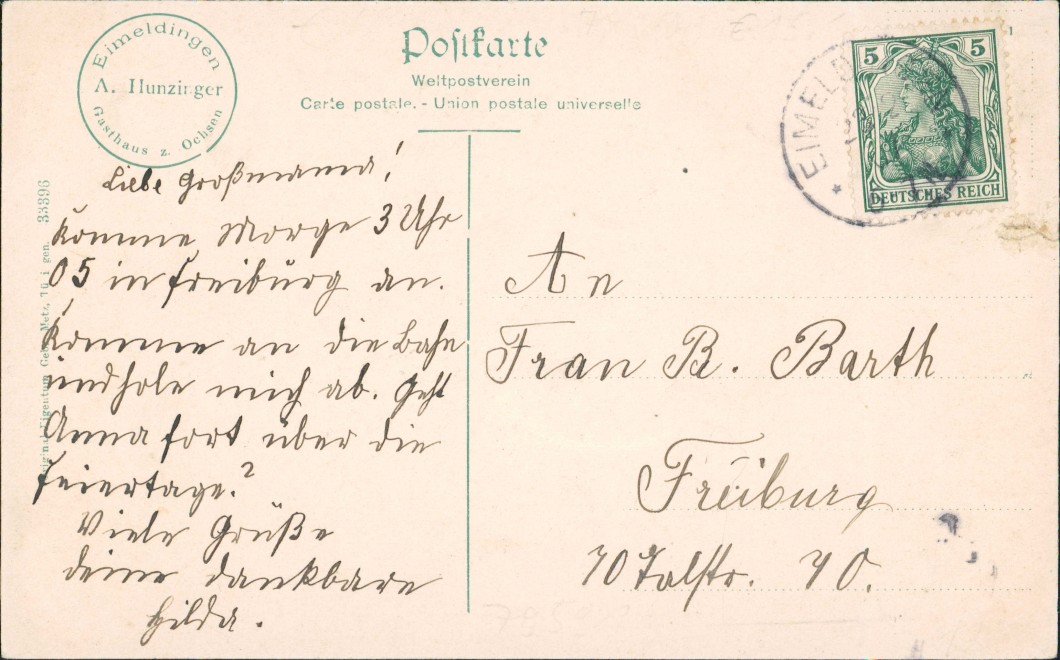 Eimeldingen
A. Hunzinger
Gasthaus z. Ochsen
Postkarte
Weltpostverein
Carte postale. - Union postale universelle
5 5
DEUTSCHES REICH
EIMELD
Liebe Großmama!
Komme Morge 3 Uhr
05 in Freiburg an.
Komme an die Bahn
und hole mich ab. Geht
Anna fort über die
Feiertage?
Viele Grüße
deine dankbare
Hilda.
An
Frau B. Barth
Freiburg
70 Talstr. 70.
Eigentum Gebr. Metz, Tübingen. 33396